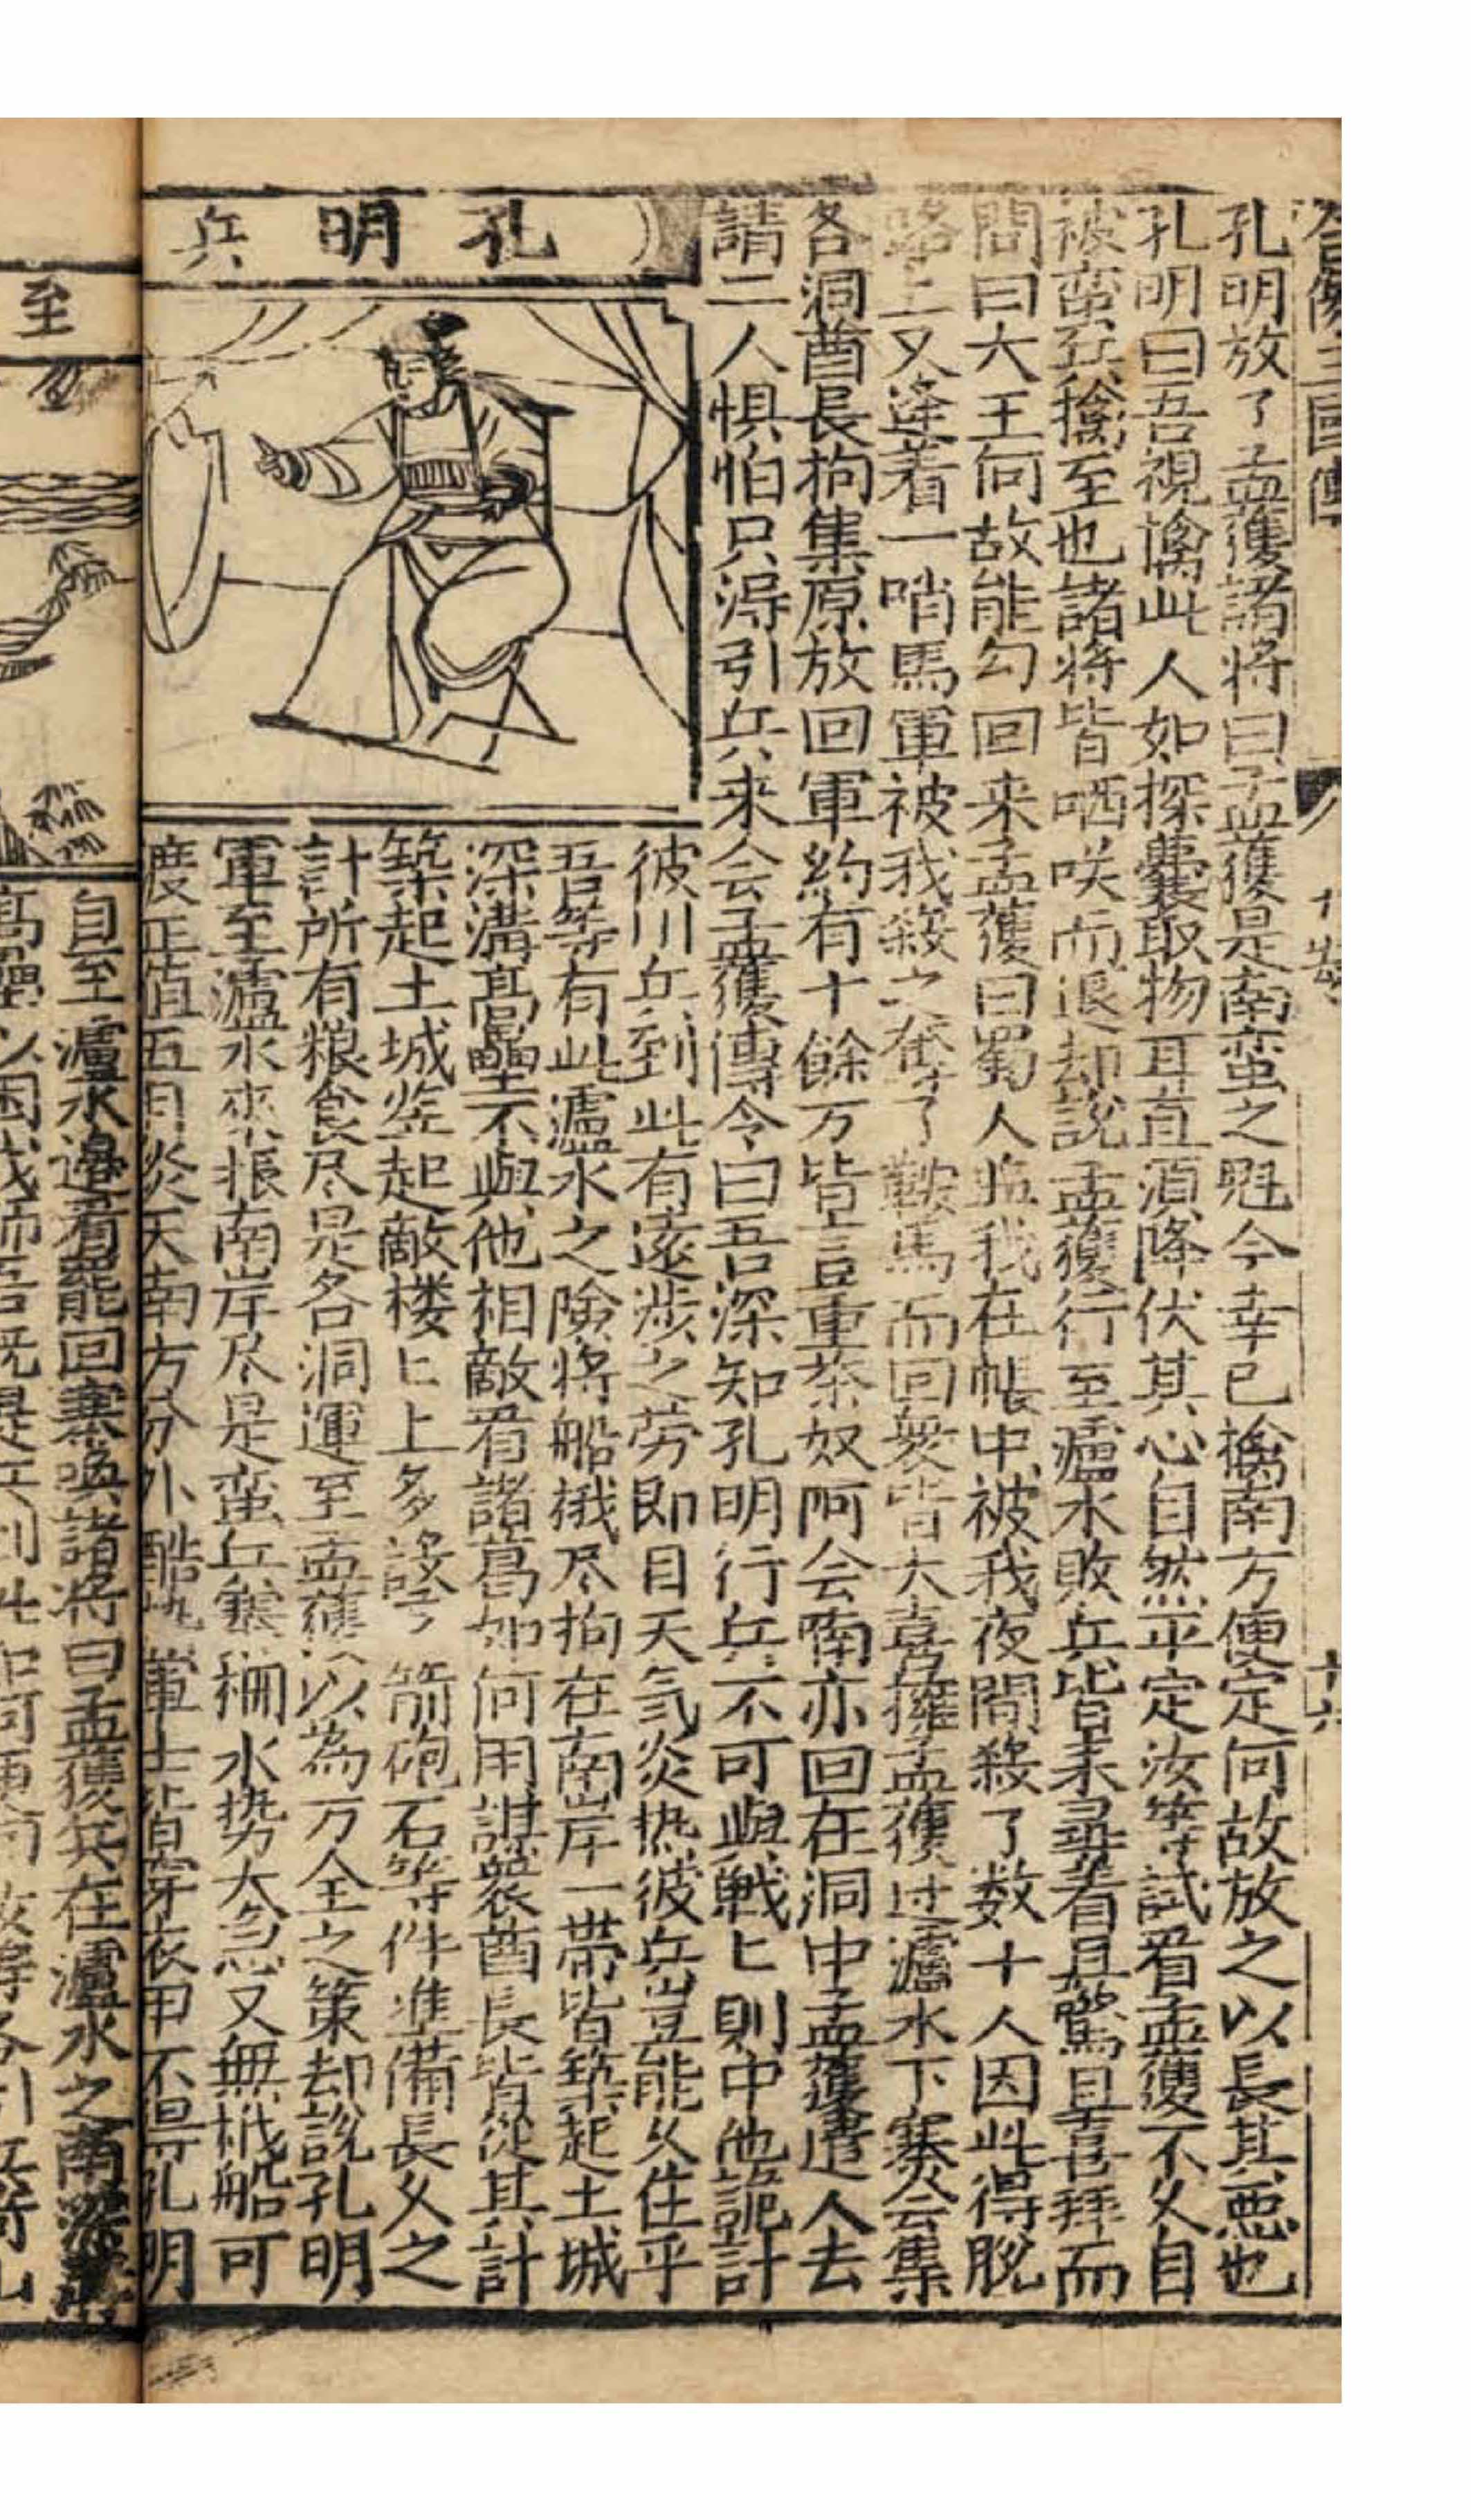 全像三國傳 八 十六
孔明放了孟獲諸將曰孟獲是南蛮之魁今幸已擒南方便定何故放之以長其惡也
孔明曰吾視擒此人如探囊取物耳直須降伏其心自然平定汝等試看孟獲不久自
被蛮兵擒至也諸將皆哂咲而退却說孟獲行至瀘水敗兵皆来尋着且驚且喜拜而
問曰大王何故能勾回来孟獲曰蜀人监我在帳中被我夜間殺了数十人因此得脫
路上又逢着一哨馬軍被我殺之夺了鞍馬而回衆皆大喜擁孟獲过瀘水下寨会集
各洞酋長拘集原放回軍約有十餘万皆言董荼奴阿会喃亦回在洞中孟獲遣人去
請二人惧怕只淂引兵来会孟獲傳令曰吾深知孔明行兵不可與戦匕則中他詭計
彼川兵到此有遠涉之劳即目天氣炎热彼兵豈能久住乎
吾等有此瀘水之險将船栰尽拘在南岸一帶皆築起土城
深溝高壘不與他相敵看諸葛如何用謀衆酋長皆從其計
築起土城竖起敵楼匕上多設弓箭砲石等件準備長久之
計所有粮食尽是各洞運至孟獲以為万全之策却說孔明
軍至瀘水来振南岸尽是蛮兵寨栅水势大急又無栰船可
度正值五月炎天南方分外酷熱軍士皆穿衣甲不得孔明
孔明兵
自至瀘水邊看罷回寨喚諸将曰孟獲兵在瀘水之南深溝
至